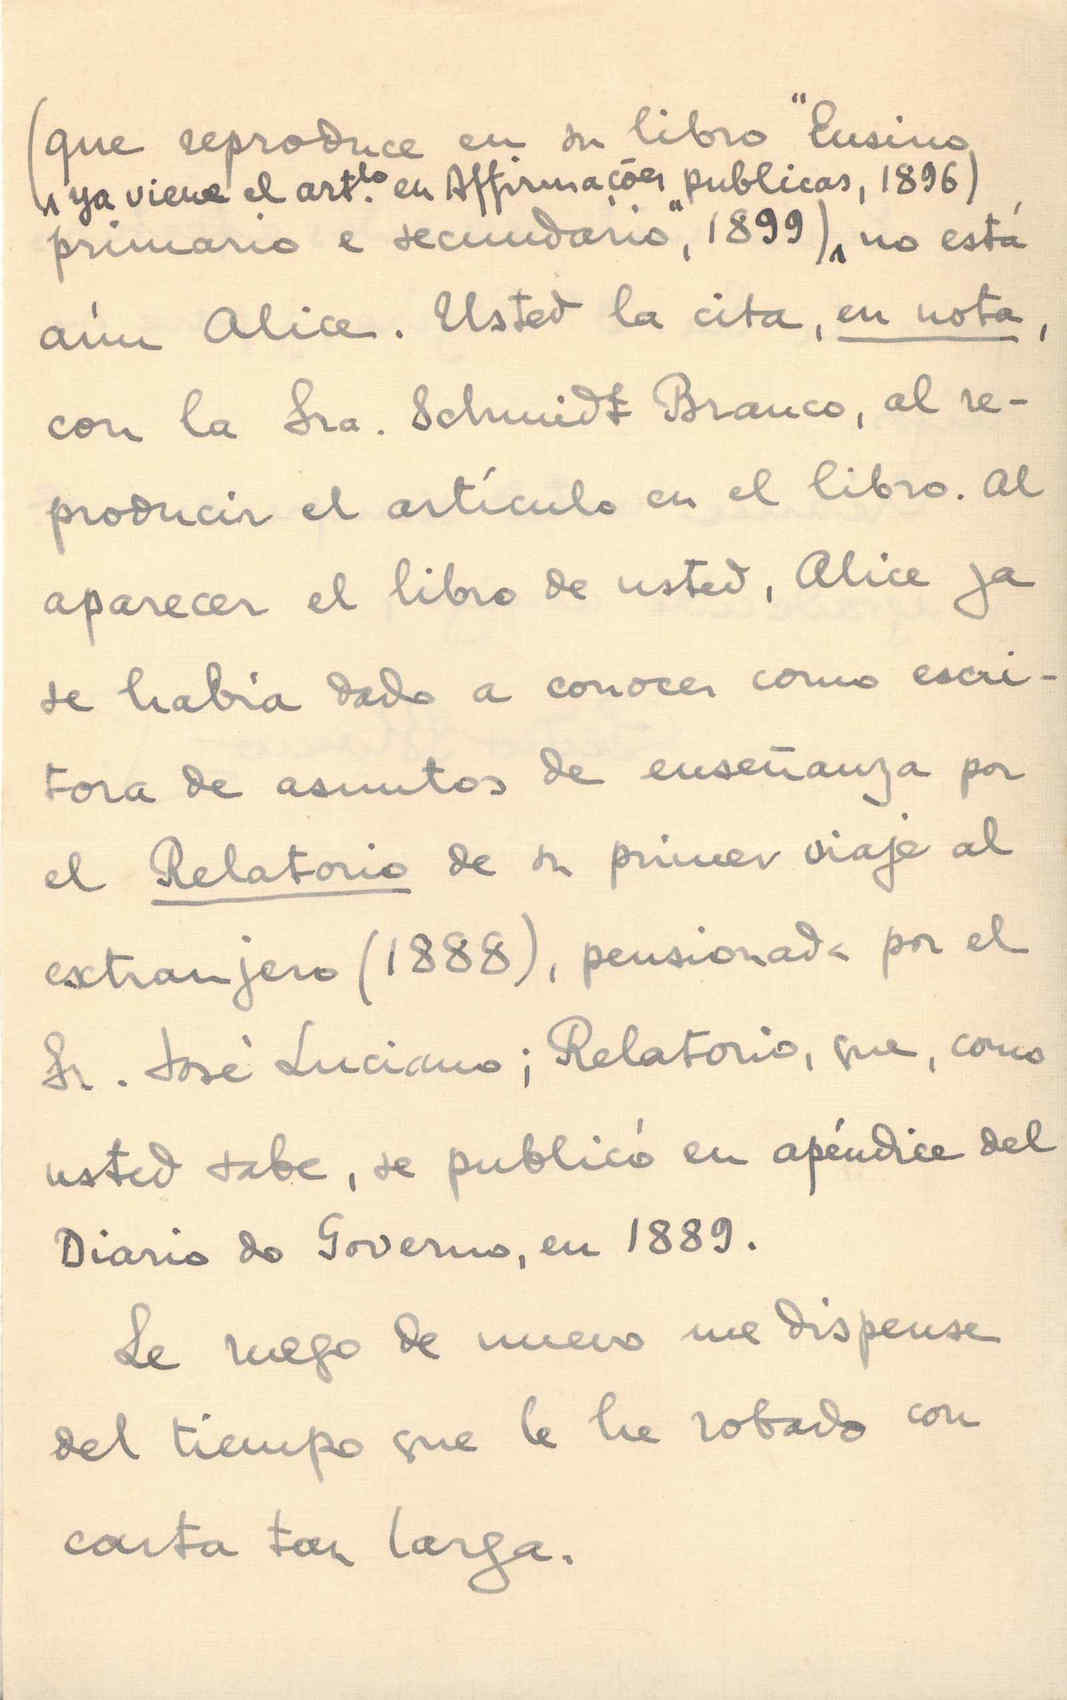 (que reproduce en su libro "Ensino
ya viene el art.lo en Affirmações publicas, 1896)
primario e secundario", 1899), no está
aún Alice. Usted la cita, en nota,
con la Sra. Schmidt Branco, al re-
producir el artículo en el libro. Al
aparecer el libro de usted, Alice ya
se había dado a conocer como escri-
tora de asuntos de enseñanza por
el Relatorio de su primer viaje al
extranjero (1888), pensionada por el
Sr. José Luciano; Relatorio, que, como
usted sabe, se publicó en apéndice del
Diario do Governo, en 1889.
Le ruego de nuevo me dispense
del tiempo que le he robado con
carta tan larga.